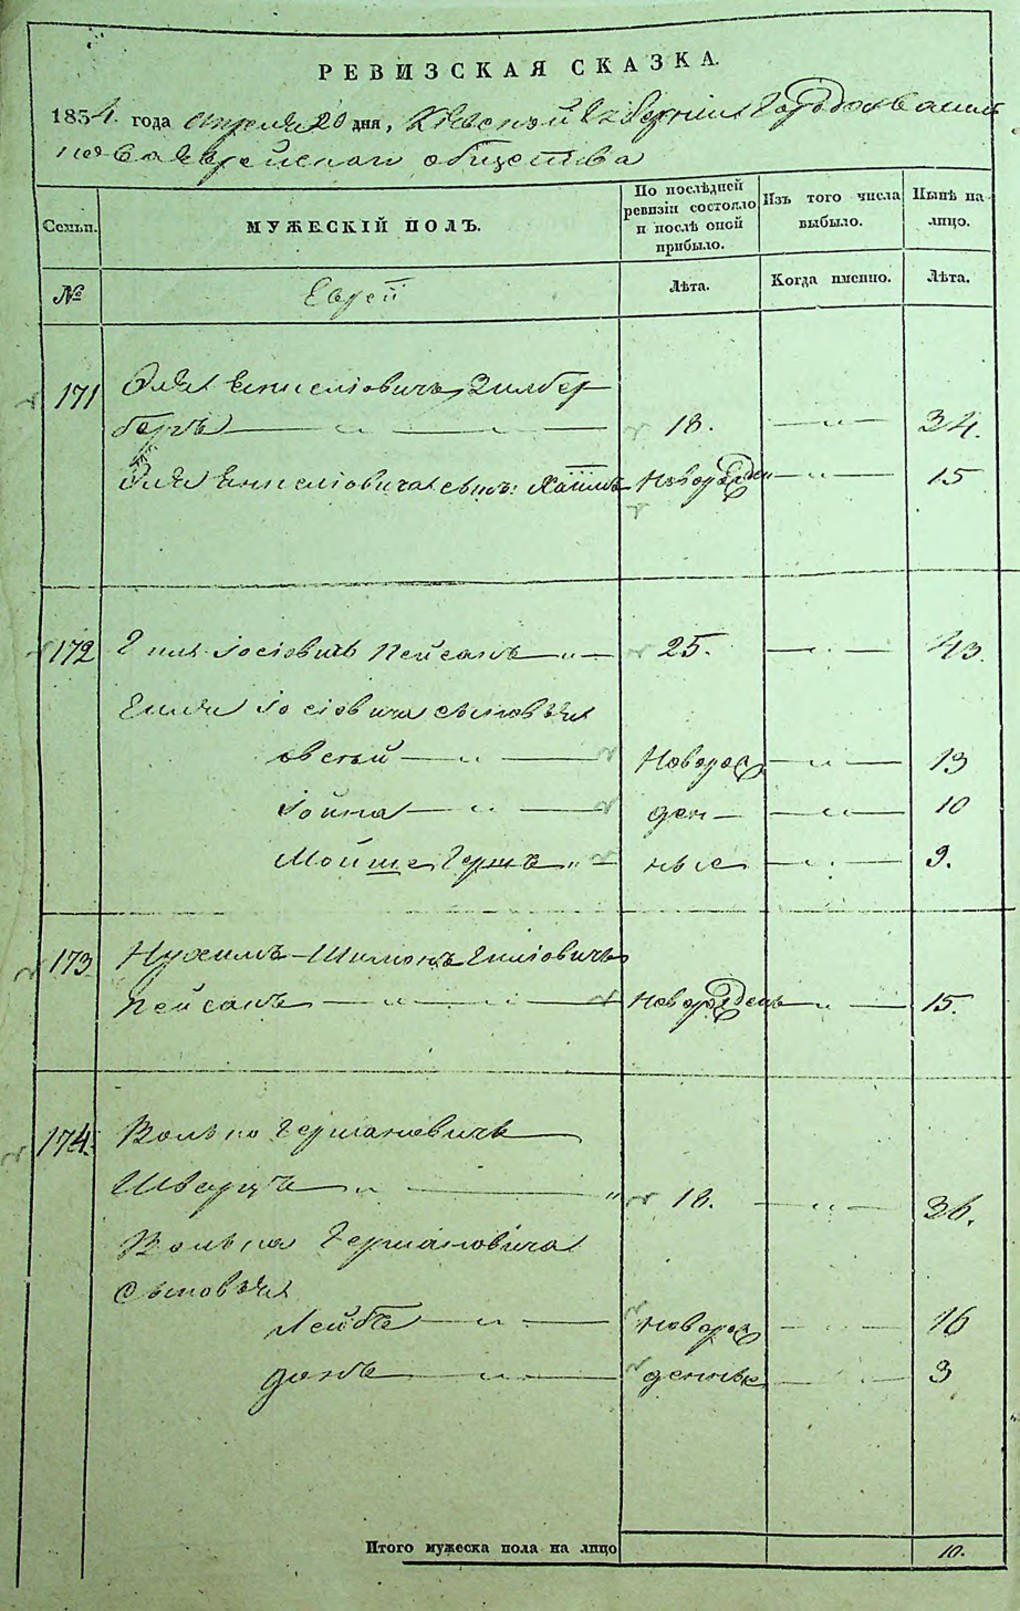 РЕВИЗСКАЯ СКАЗКА.
1854. года апреля 20 дня, Кіевской Губерніи Города
Еврейскаго общества
Семьи. МУЖЕСКІЙ ПОЛЪ. По послѣдней ревизіи состояло и послѣ оной прибыло. Изъ того числа выбыло. Нынѣ на лицо.
№ Еврей Лѣта. Когда именно. Лѣта.
171 Зилбер-
бергъ — „ — 18. — „ — 34.
сынъ: Хаимъ Новорожден — „ — 15
172 Іосіовичъ Пейсахъ — „ — 25. — „ — 43.
Іосіовича сыновья
Овсѣй — „ — Новорож — „ — 13
Іойна — „ — ден — — „ — 10
Мойше Гершъ „ — ные — „ — 9.
173 Нухимъ-Шимонъ
Пейсахъ — „ — новорожденъ — „ — 15.
174. Волько Германовичъ —
Шварцъ — „ — 18. — „ — 36.
Волька Германовича
Сыновья
Лейбъ — „ — новорож — — 16
— „ — денные — — 3
Итого мужеска пола на лицо 10.